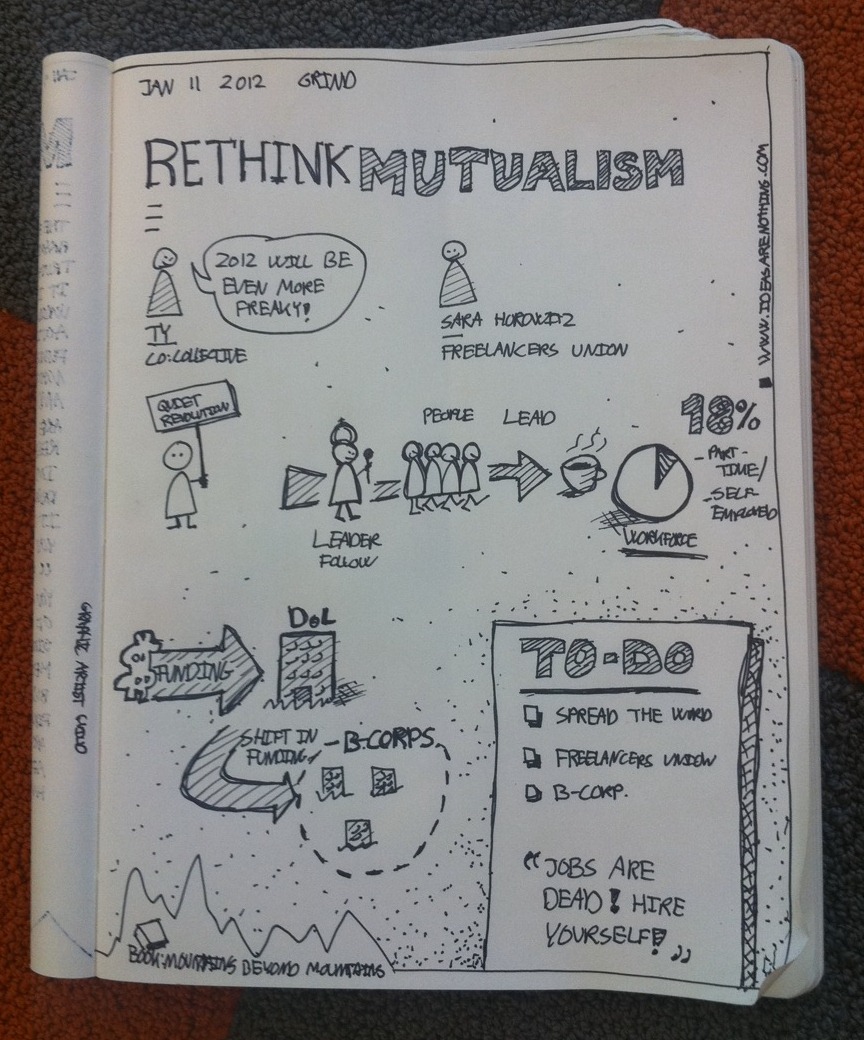 JAN 11 2012 GRIND
RETHINK MUTUALISM
WWW.IDEASARENOTHING.COM
2012 WILL BE
EVEN MORE
FREAKY!
TY
CO:COLLECTIVE
SARA HOROWITZ
FREELANCERS UNION
QUIET
REVOLUTION
PEOPLE LEAD
LEADER
FOLLOW
18%
- PART-
TIME/
- SELF
EMPLOYED
WORKFORCE
FUNDING
DOL
SHIFT IN
FUNDING
- B.CORPS.
TO-DO
SPREAD THE WORD
FREELANCERS UNION
B-CORP.
"JOBS ARE
DEAD! HIRE
YOURSELF!"
BOOK: MOUNTAINS BEYOND MOUNTAINS
GRAPHIC ARTIST GUILD